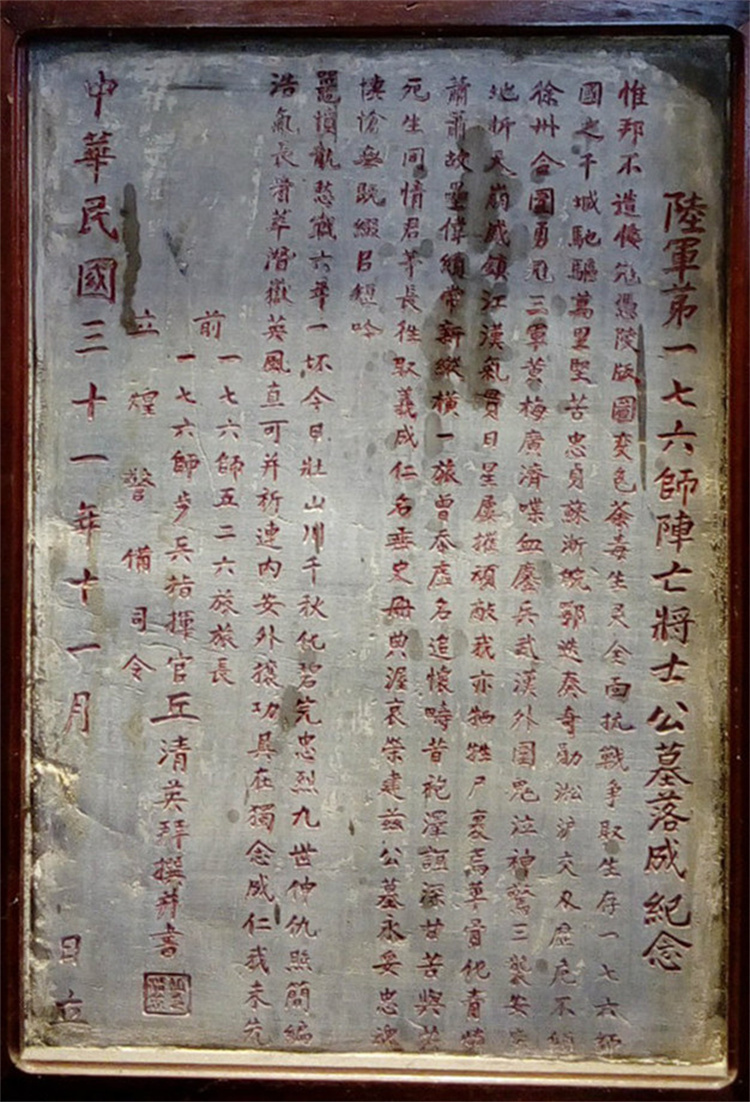 陸軍第一七六師陣亡將士公墓落成紀念
惟邦不造倭寇憑陵版圖變色荼毒生民全面抗戰爭取生存一七六師
國之干城馳驅萬里堅苦忠貞蘇浙皖鄂迭奏奇勛淞沪交歷危不
徐州合圍勇冠三軍黃梅廣濟喋血鏖兵武漢外圍鬼泣神驚三襲安慶
地析天崩威鎮江漢氣貫日星屢摧頑敵我亦牺牲尸裹馬革骨化青燐
蕭蕭故壘偉績常新縱橫一旅曾忝虛名追懷疇昔袍澤誼深甘苦與共
死生同情君等長往取義成仁名垂史冊典渥哀榮建茲公墓永妥忠魂
悽愴無既綴以短吟
愁戰六年一坏今日壯山川千秋化碧完忠烈九世仲仇照簡編
浩氣長萃潛英風直可并祈連內安外攘功具在獨念成仁我未先
前一七六師五二六旅旅長
一七六師步兵指揮官丘清英拜撰并書
立煌警備司令
中華民國三十一年十一月 日立